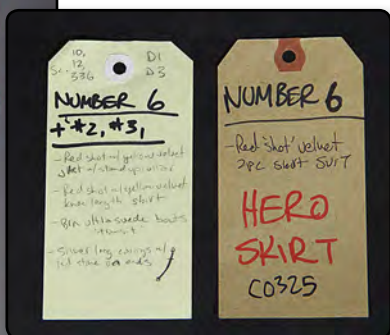 10, D1
12, D3
Sc. 336
NUMBER 6
+ *2, *3,
- Red shot w/ yellow velvet
w/ stand up collar
- Red shot w/ yellow velvet
knee length skirt
- Brn ultrasuede boots
- Silver long earings w/
red stone ends
NUMBER 6
- Red 'shot' velvet
2pc skirt SUIT
HERO
SKIRT
C0325